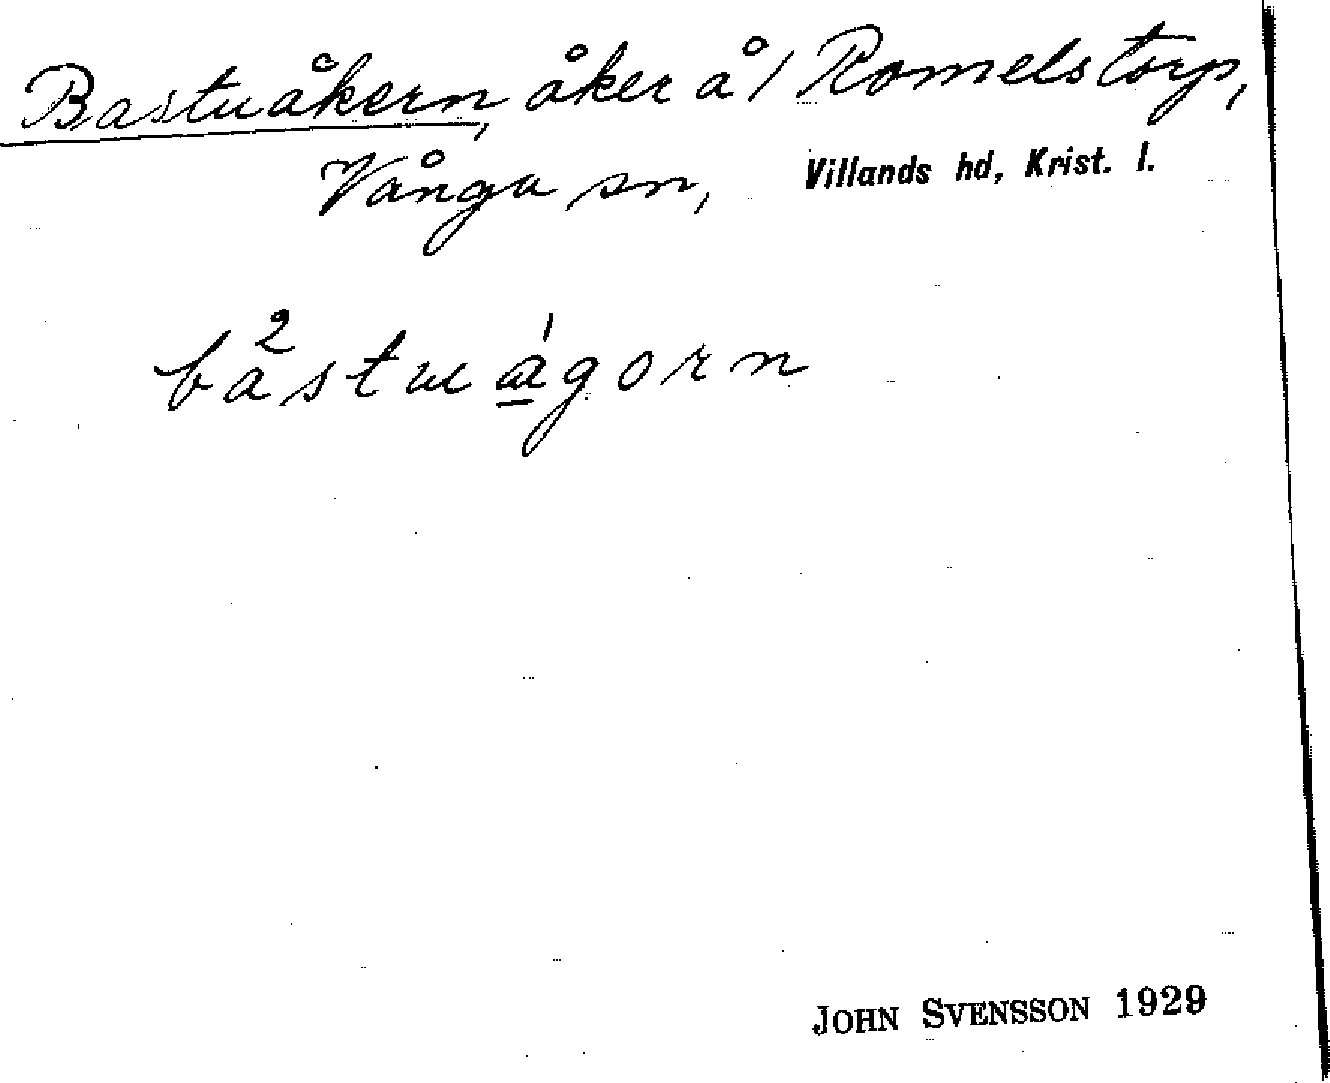 Bastuåkern, åker å / Romelstorp,
Vånga sn, Villands hd, Krist. l.
ba²stuágorn
JOHN SVENSSON 1929